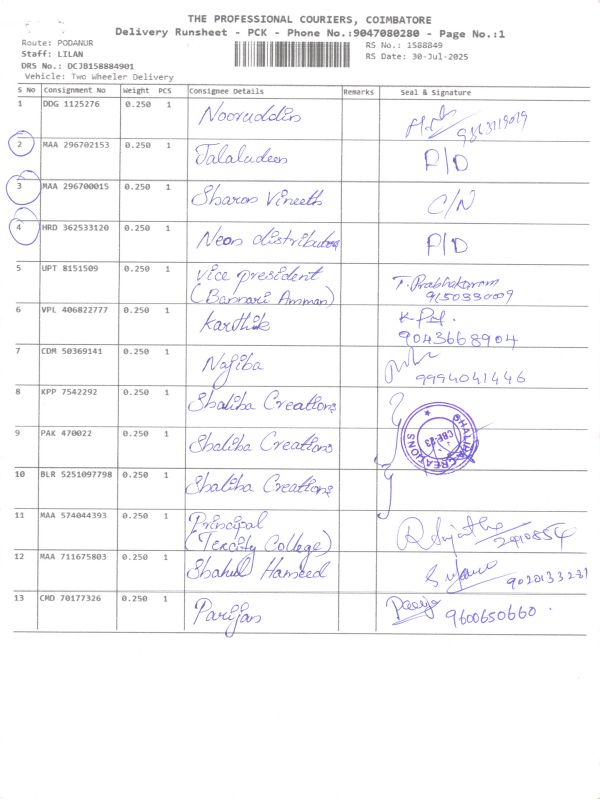 THE PROFESSIONAL COURIERS, COIMBATORE
Delivery Runsheet - PCK - Phone No.:9047080280 - Page No.:1
Route: PODANUR
RS No.: 1588849
Staff: LILAN
RS Date: 30-Jul-2025
DRS No.: DCJB158884901
Vehicle: Two Wheeler Delivery
S No Consignment No Weight PCS Consignee Details Remarks Seal & Signature
1 DDG 1125276 0.250 1 Nooruddin
2 MAA 296702153 0.250 1 Jalaludeen P/D
3 MAA 296700015 0.250 1 Sharon Vineeth C/N
4 HRD 362533120 0.250 1 Neon distributors P/D
5 UPT 8151509 0.250 1 Vice president T. Prabhakaran
(Bannari Amman)
6 VPL 406822777 0.250 1 Karthik
9043668904
7 CDM 50369141 0.250 1 Najiba
9994041446
8 KPP 7542292 0.250 1 Shaliha Creations
SHALIHA CREATIONS
CBE-23
9 PAK 470022 0.250 1 Shaliha Creations
10 BLR 5251097798 0.250 1 Shaliha Creations
11 MAA 574044393 0.250 1 Principal R Sujatha
(Texcity College) 2410854
12 MAA 711675803 0.250 1 Shahul Hameed
9020133231
13 CMD 70177326 0.250 1 Parijan
9600650660